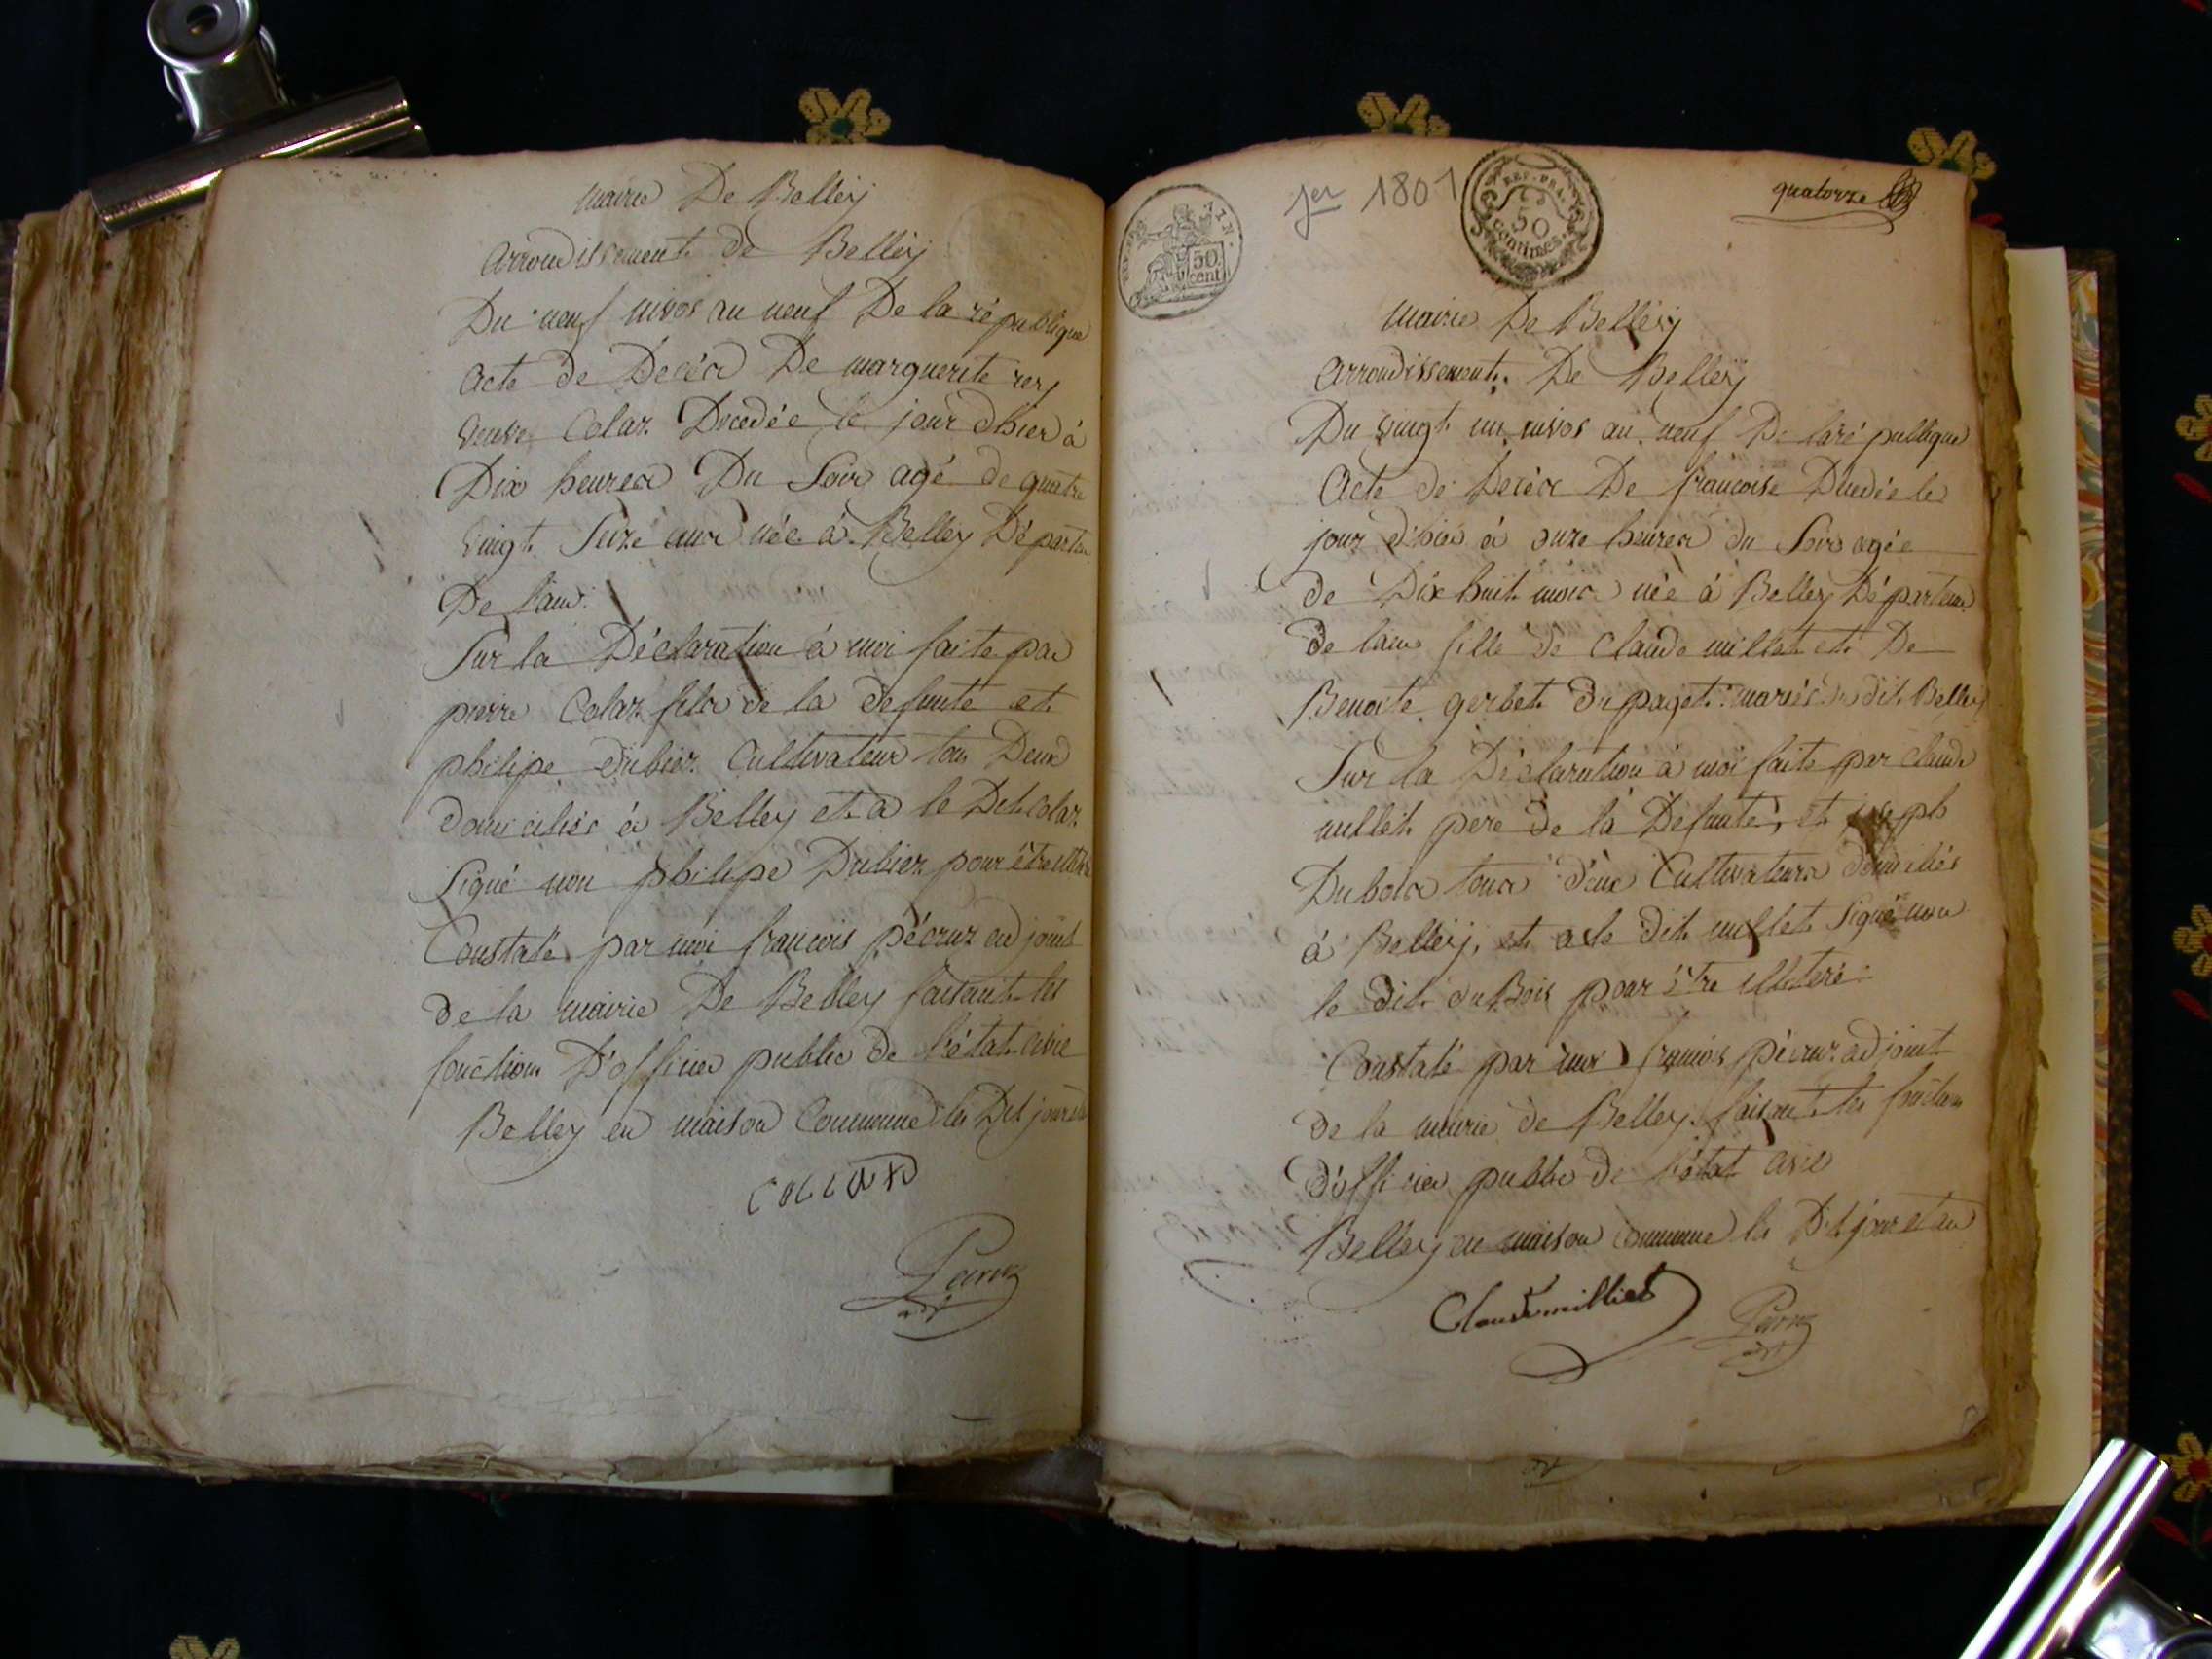 mairie De Belleÿ
arrondissement de Belleÿ
Du neuf nivos an neuf De la république
acte de Decéa De marguerite rey
veuve Colaz Decedée le jour d'hier à
Dix heurea Du Soir agé de quatre
vingt Seize ana née à Belley Départem
De l'ain
Sur la Déclaration à moi faite par
pierre Colaz fila de la defunte et
philipe dubiez Cultivateur tous Deux
domiciliés à Belley et a le Dit Colaz
Signé non philipe Dubiez pour être
Constaté par moi francois pécruz adjoint
de la mairie De Belley faisant les
fonctions D'officier public de l'état civil
Belley en maison Commune les Dit jour
COLLIAX
Pécruz
REP. FRA.
50
cent
jer 1801
REP. FRA.
50
centimes
quatorze
mairie De Belléÿ
arrondissement De Belleÿ
Du vingt un nivos an neuf De la ré publique
acte de Decéa De francoise Decedée le
jour d'hier à onze heurea du Soir agée
de Dix huit moia née à Belley Départem
de lain fille de Claude millet et De
Benoite gerbet du pajet mariés du dit Belley
Sur la Déclaration à moi faite par Claude
millet pere de la Defunte, et joseph
Duboia tous deux Cultivateurs domiciliés
à Belleÿ, et a le dit millet Signé non
le dit duBois pour être illiteré
Constaté par moi francois pécruz adjoint
de la mairie de Belley faisant les fonctions
d'officier public de l'état civil
Belley en maison commune les Dit jour et an
Claude milliet
Pécruz